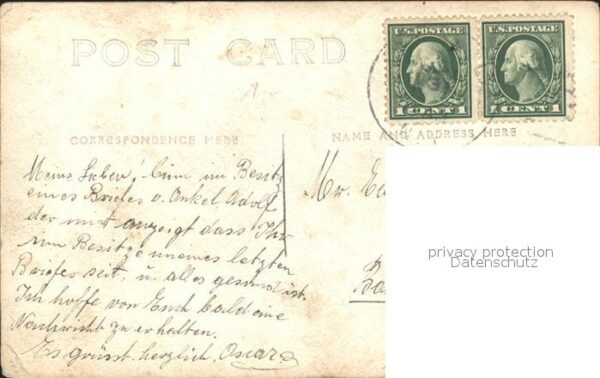 POST CARD
U.S. POSTAGE
1 CENTS 1
U.S. POSTAGE
1 CENTS 1
CORRESPONDENCE HERE
NAME AND ADDRESS HERE
Meine Lieben! bin im Besitz
eines Briefes v. Onkel Adolf
der mir anzeigt dass Ihr
im Besitze meines letzten
Briefes seit, u. alles gesund ist.
Ich hoffe von Euch bald eine
Nachricht zu erhalten.
Es grüsst herzlich, Oscar
Mr.
privacy protection
Datenschutz